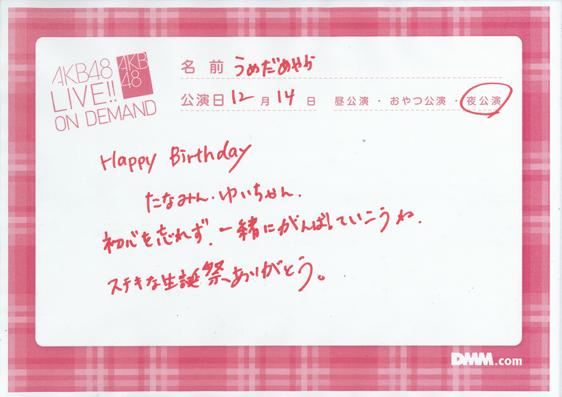 AKB48
LIVE!!
ON DEMAND
AKB
48
名 前 うめだあやか
公演日 12 月 14 日 昼公演・おやつ公演・夜公演
Happy Birthday
たなみん・ゆいちゃん.
初心を忘れず、一緒にがんばっていこうね.
ステキな生誕祭ありがとう。
DMM.com